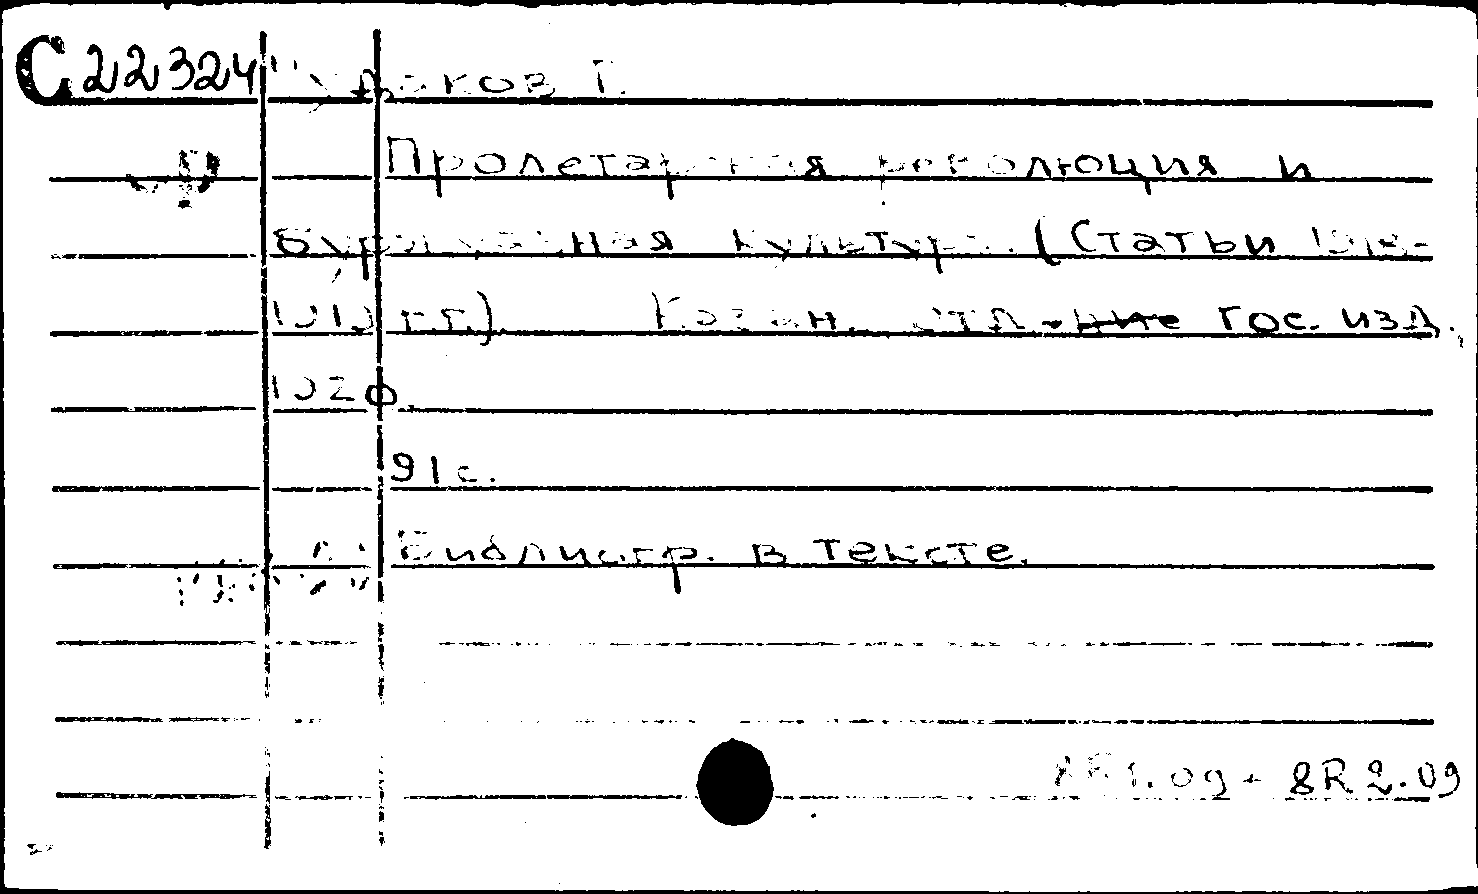 С 22324
Пролетарская революция и
буржуазная культура. (Статьи 1918-
1919 г.г.) Казан. отд-ние гос. изд.,
1920.
91 с.
Библиогр. в тексте.
8R1.09 + 8R2.09